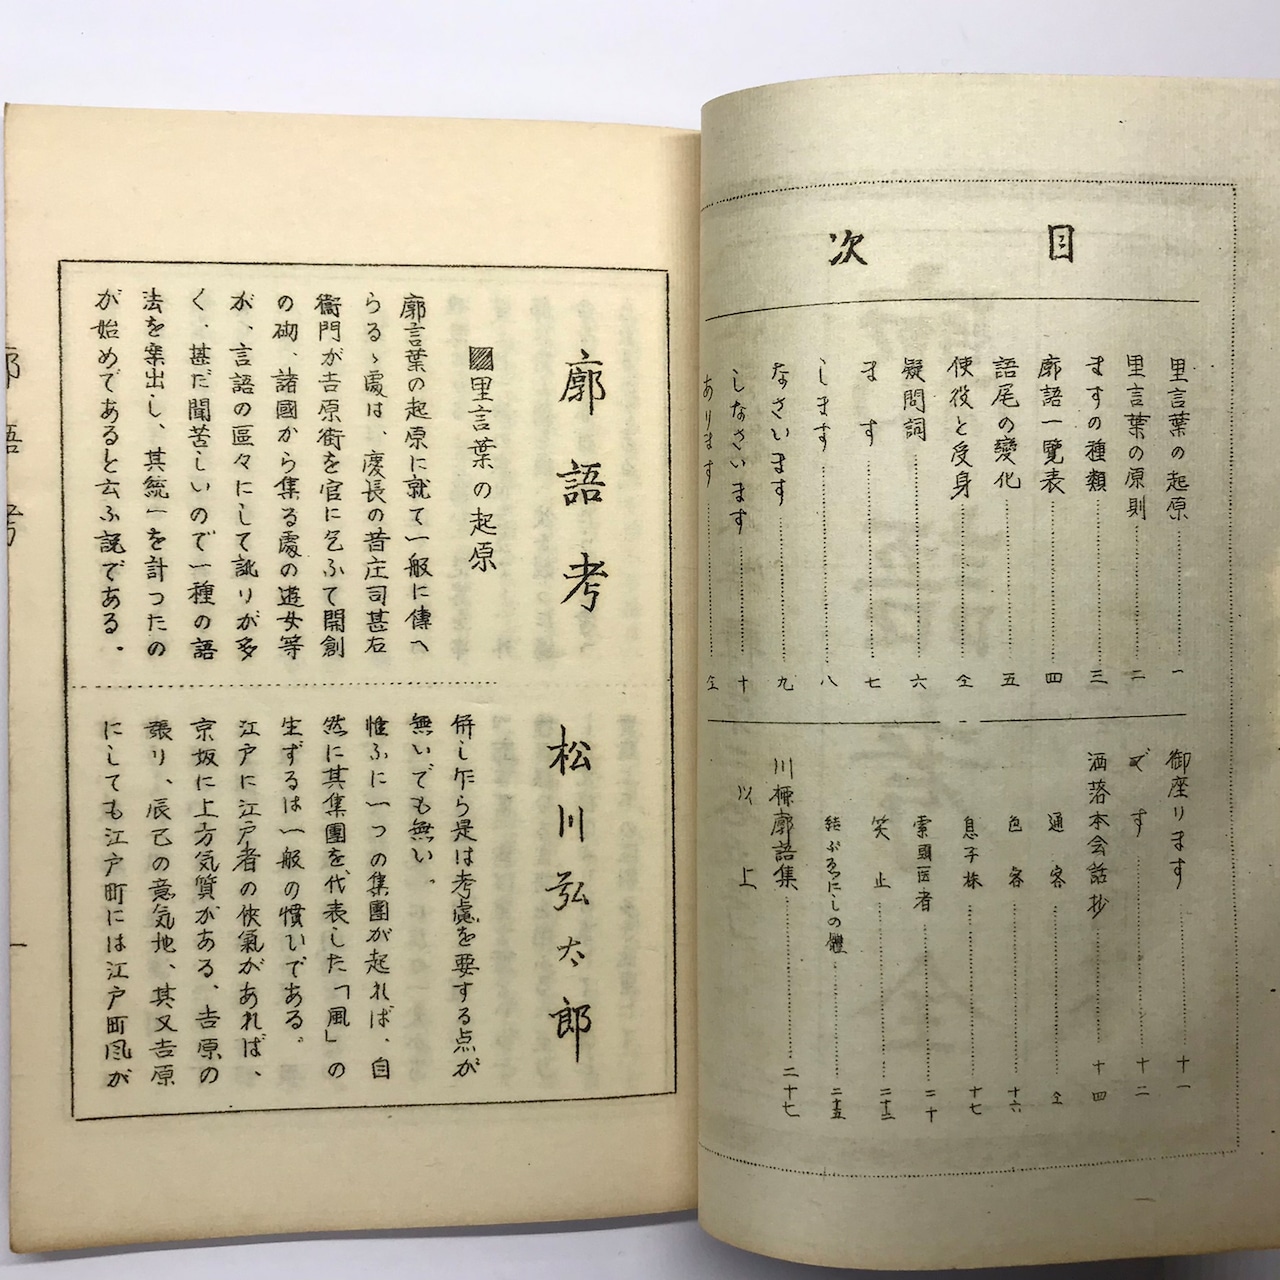 目次
里言葉の起原 一
里言葉の原則 二
ますの種類 三
廓語一覽表 四
語尾の變化 五
使役と受身 仝
疑問詞 六
ます 七
します 八
なさいます 九
しなさいます 十
あります 仝
御座ります 十一
です 十二
洒落本会話抄 十四
通客 仝
色客 十六
息子株 十七
索頭医者 二十
笑止 二十三
結ぶるにしの體 二十五
川柳廓語集 二十七
以上
廓語考 松川弘太郎
里言葉の起原
廓言葉の起原に就て一般に傳へ
らるゝ處は、慶長の昔庄司甚右
衞門が吉原街を官に乞ふて開創
の砌、諸國から集る處の遊女等
が、言語の區々にして訛りが多
く、甚だ聞苦しいので一種の語
法を案出し、其統一を計つたの
が始めであると云ふ説である。
併し乍ら是は考慮を要する点が
無いでも無い。
惟ふに一つの集團が起れば、自
然に其集團を代表した「風」の
生ずるは一般の慣いである。
江戸に江戸者の侠氣があれば、
京坂に上方気質がある、吉原の
張り、辰己の意気地、其又吉原
にしても江戸町には江戸町風が
廓語考
一